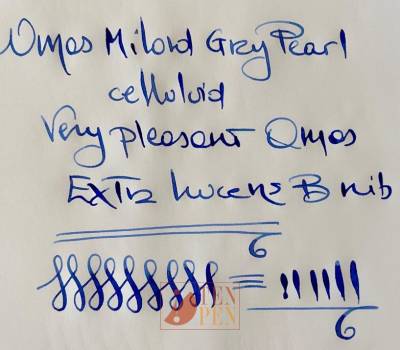 Omas Milord Grey Pearl
celluloid
Very pleasant Omas
Extra lucens B nib
TEN
PEN